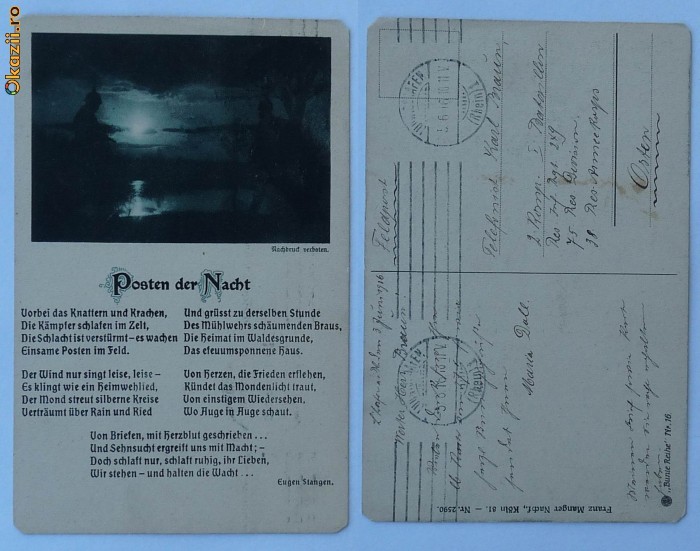 Okazii.ro
Nachdruck verboten.
Posten der Nacht
Vorbei das Knattern und Krachen,
Die Kämpfer schlafen im Zelt,
Die Schlacht ist verstürmt – es wachen
Einsame Posten im Feld.
Der Wind nur singt leise, leise –
Es klingt wie ein Heimwehlied,
Der Mond streut silberne Kreise
Verträumt über Rain und Ried
Und grüsst zu derselben Stunde
Des Mühlwehrs schäumenden Braus,
Die Heimat im Waldesgrunde,
Das efeuumsponnene Haus.
Von Herzen, die Frieden erflehen,
Kündet das Mondenlicht traut,
Von einstigem Wiedersehen,
Wo Auge in Auge schaut.
Von Briefen, mit Herzblut geschrieben ...
Und Sehnsucht ergreift uns mit Macht; –
Doch schlaft nur, schlaft ruhig, ihr Lieben,
Wir stehen – und halten die Wacht ...
Eugen Stangen.
Feldpost
Telefonist Karl Braun,
2 Komp. I Bataillon
Res Inf Rgt 249
75 Res Division
38 Res Armee Korps
Osten
(Rhein)
den 3 Juni 1916
Werter Herr Braun.
Maria Doll.
(Rhein)
„Bunte Reihe" Nr. 16
Franz Manger Nachf., Köln 61. – Nr. 2590.